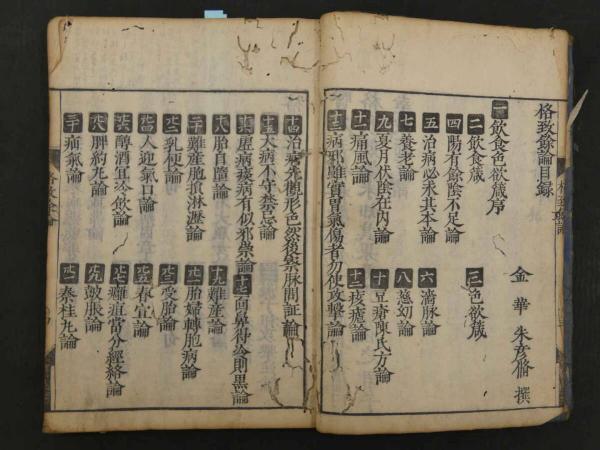 格致餘論目録
金華朱彦脩撰
一飲食色欲箴序
二飲食箴
三色欲箴
四陽有餘陰不足論
五治病必求其本論
六濇脉論
七養老論
八慈幼論
九夏月伏陰在内論
十豆瘡陳氏方論
十一痛風論
十二痎瘧論
十三病邪雖實胃氣傷者勿使攻擊論
十四治病先觀形色然後察脉問証論
十五大病不守禁忌論
十六虚病痰病有似邪祟論
十七面鼻得冷則黒論
十八胎自墮論
十九難産論
二十難産胞損淋瀝論
廿一胎婦轉胞病論
廿二乳硬論
廿三受胎論
廿四人迎氣口論
廿五春宣論
廿六醇酒宜冷飲論
廿七癰疽當分經絡論
廿八脾約丸論
廿九皷脹論
三十疝氣論
卅一秦桂丸論